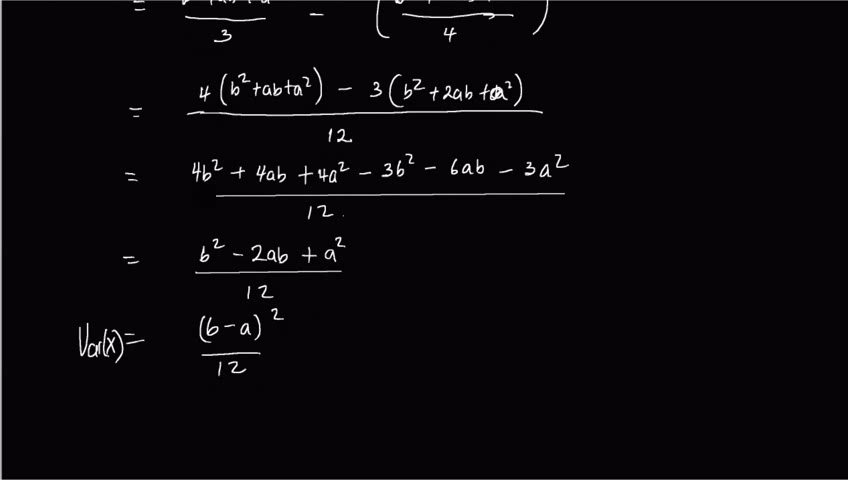 = 3 - ( 4 )
= 4(b²+ab+a²) - 3(b²+2ab+a²) / 12
= 4b² + 4ab + 4a² - 3b² - 6ab - 3a² / 12
= b² - 2ab + a² / 12
Var(x) = (b-a)² / 12